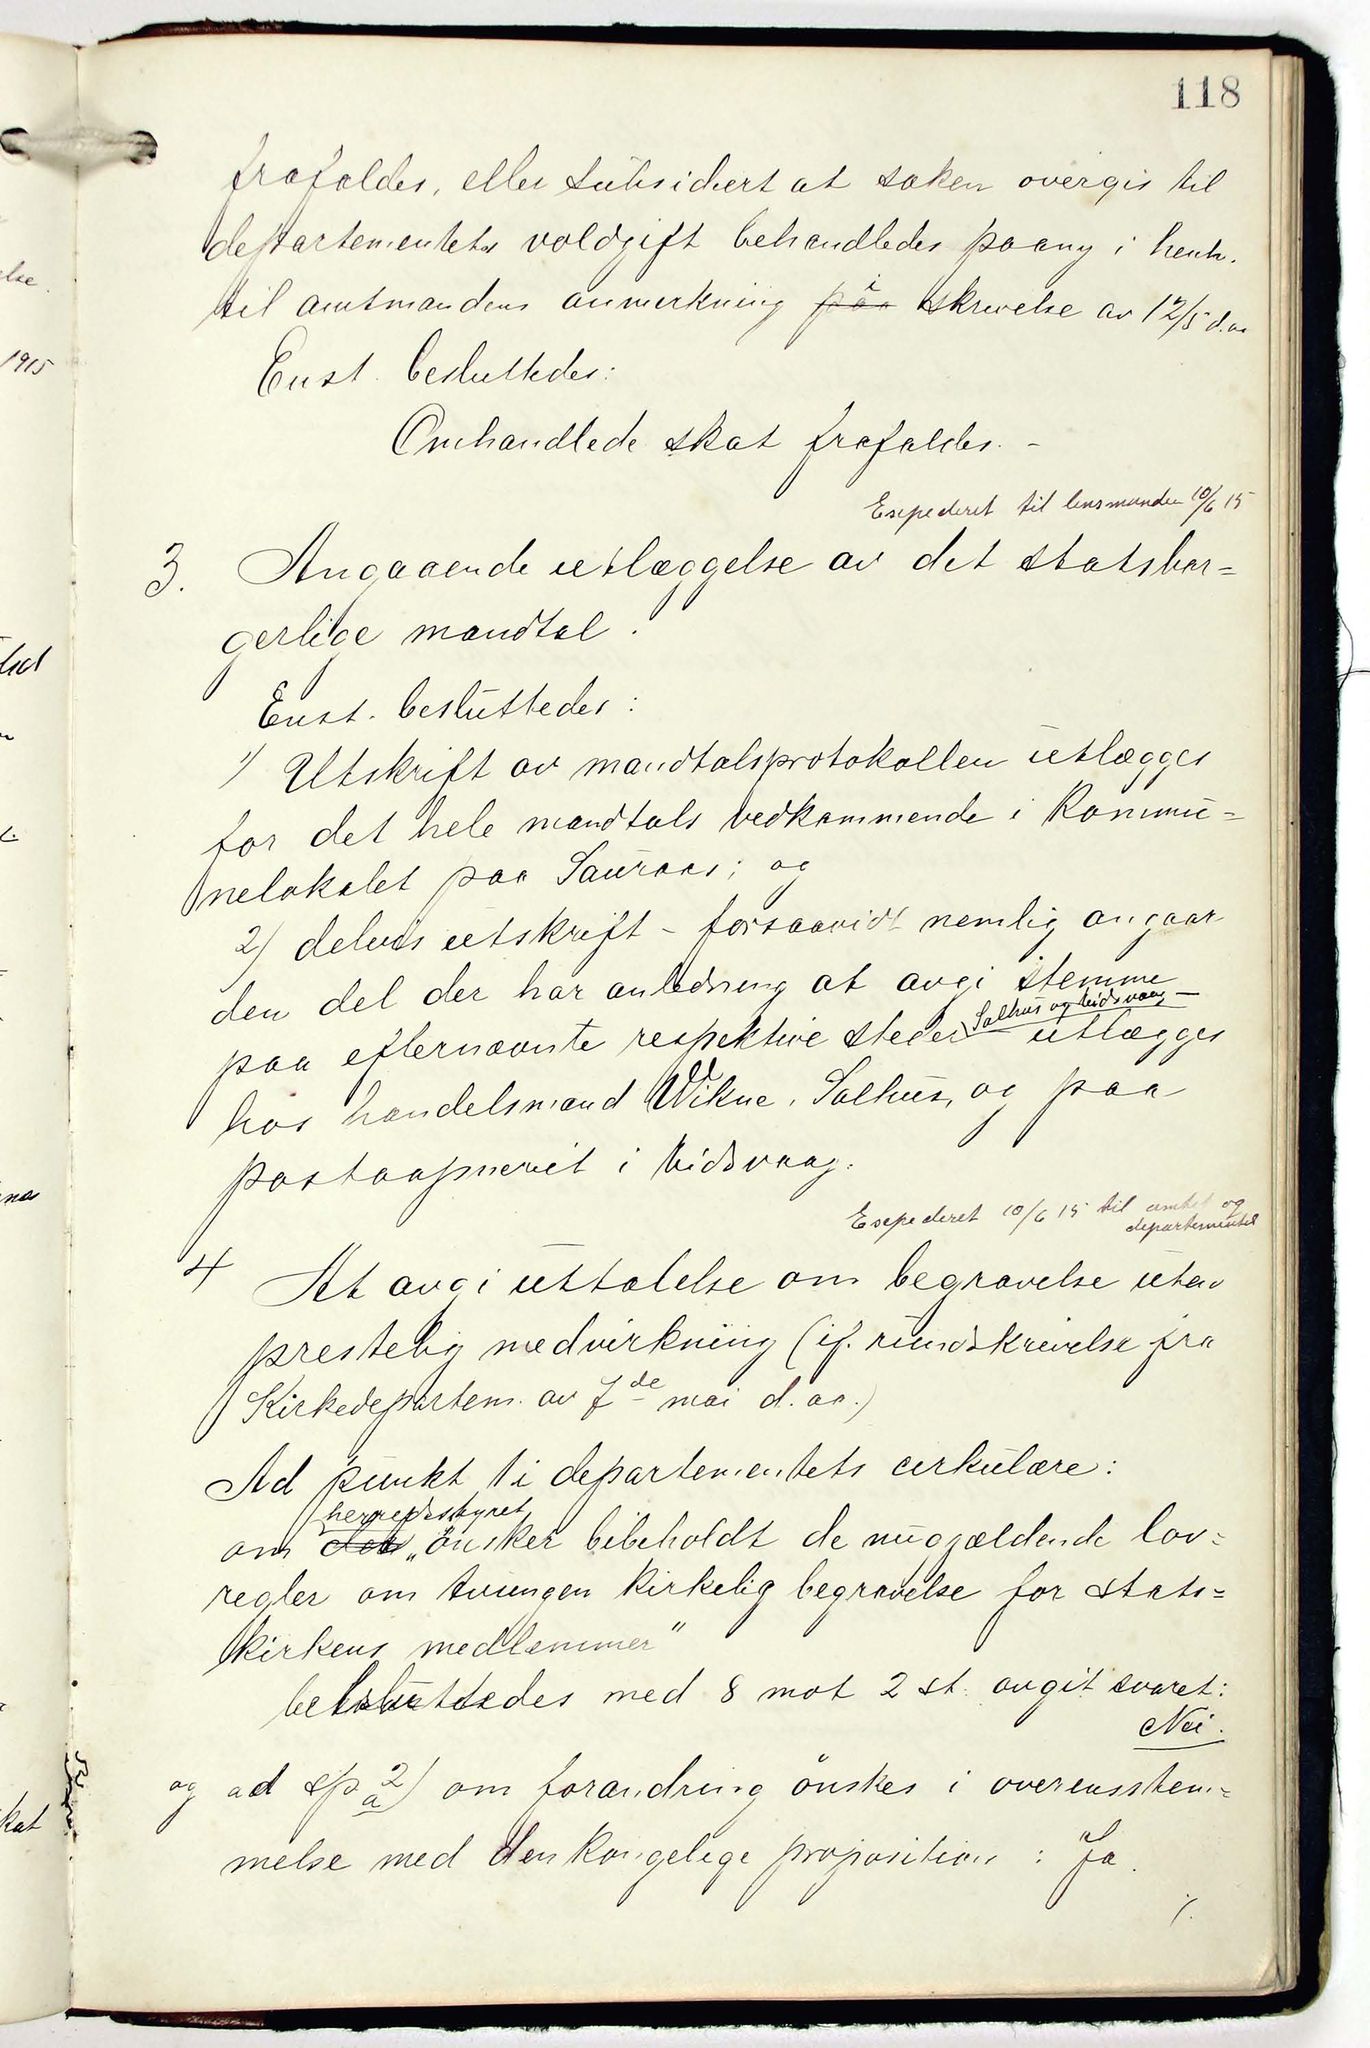 118
frafaldes, eller subsidiert at saken overgis til
departementets voldgift behandledes paany i henh.
til amtmandens anmerkning paa i skrivelse av 12/5 d.aa
Enst. besluttedes:
Omhandlede skat frafaldes. -
Expederet til lensmanden 10/6 15
3. Angaaende utlæggelse av det statsbor=
gerlige mandtal.
Enst. besluttedes:
1) Utskrift av mandtalsprotokollen utlægges
for det hele mandtals vedkommende i Kommu=
nelokalet paa Sauraas; og
2) delvis utskrift - forsaavidt nemlig angaar
den del der har anledning at avgi stemme
paa efternævnte respektive steder Salhus og Eidsvaag - utlægges
hos handelsmand Wikne, Salhus, og paa
postaapneriet i Eidsvaag.
Expederet 10/6 15 til amtet og
departementet
4 At avgi uttalelse om begravelse uten
prestelig medvirkning (jf. rundskrivelse fra
Kirkedepartem. av 7de mai d.aa.)
Ad punkt 1 i departementets cirkulære:
om herredsstyret „ønsker bibeholdt de nugjældende lov=
regler om tvungen kirkelig begravelse for stats=
kirkens medlemmer"
besluttedes med 8 mot 2 st. avgit svaret:
Nei.
og ad sp 2) a om forandring ønskes i overensstem=
melse med den kongelige proposition: Ja.
/.
1915
kat